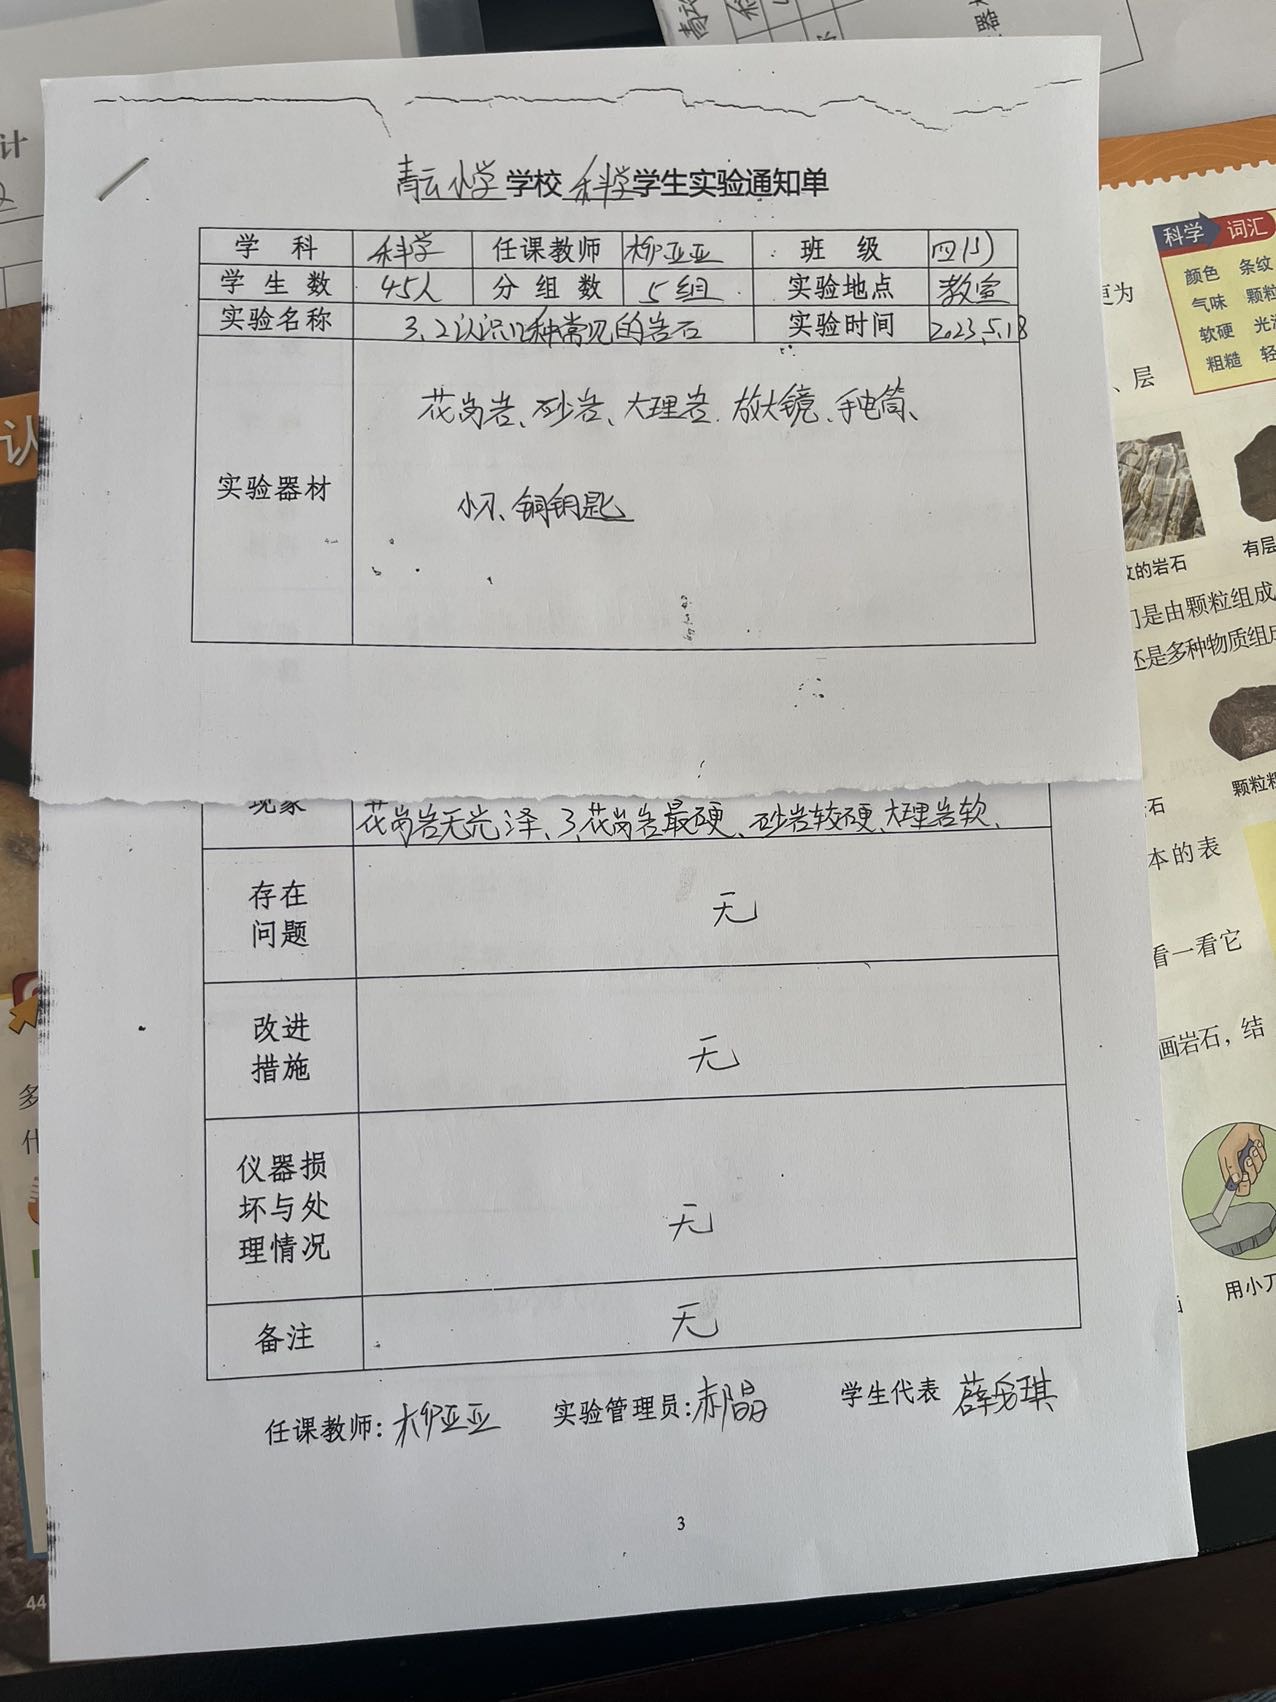 青云小学学校科学学生实验通知单
学科 科学 任课教师 柳亚亚 班级 四(1)
学生数 45人 分组数 5组 实验地点 教室
实验名称 3.2认识几种常见的岩石 实验时间 2023.5.18
实验器材
花岗岩、砂岩、大理岩、放大镜、手电筒、
小刀、铜钥匙
现象 花岗岩无光泽、3.花岗岩最硬、砂岩较硬、大理岩软、
存在问题 无
改进措施 无
仪器损坏与处理情况 无
备注 无
任课教师:柳亚亚 实验管理员:郝晶 学生代表 薛
3
科学 词汇
颜色 条纹
气味 颗粒
软硬 光
粗糙 轻
更为
、层
的岩石
有层
门是由颗粒组成
还是多种物质组成
石
颗粒粗
本的表
看一看它
画岩石，结
用小刀
计
认
多
什
44